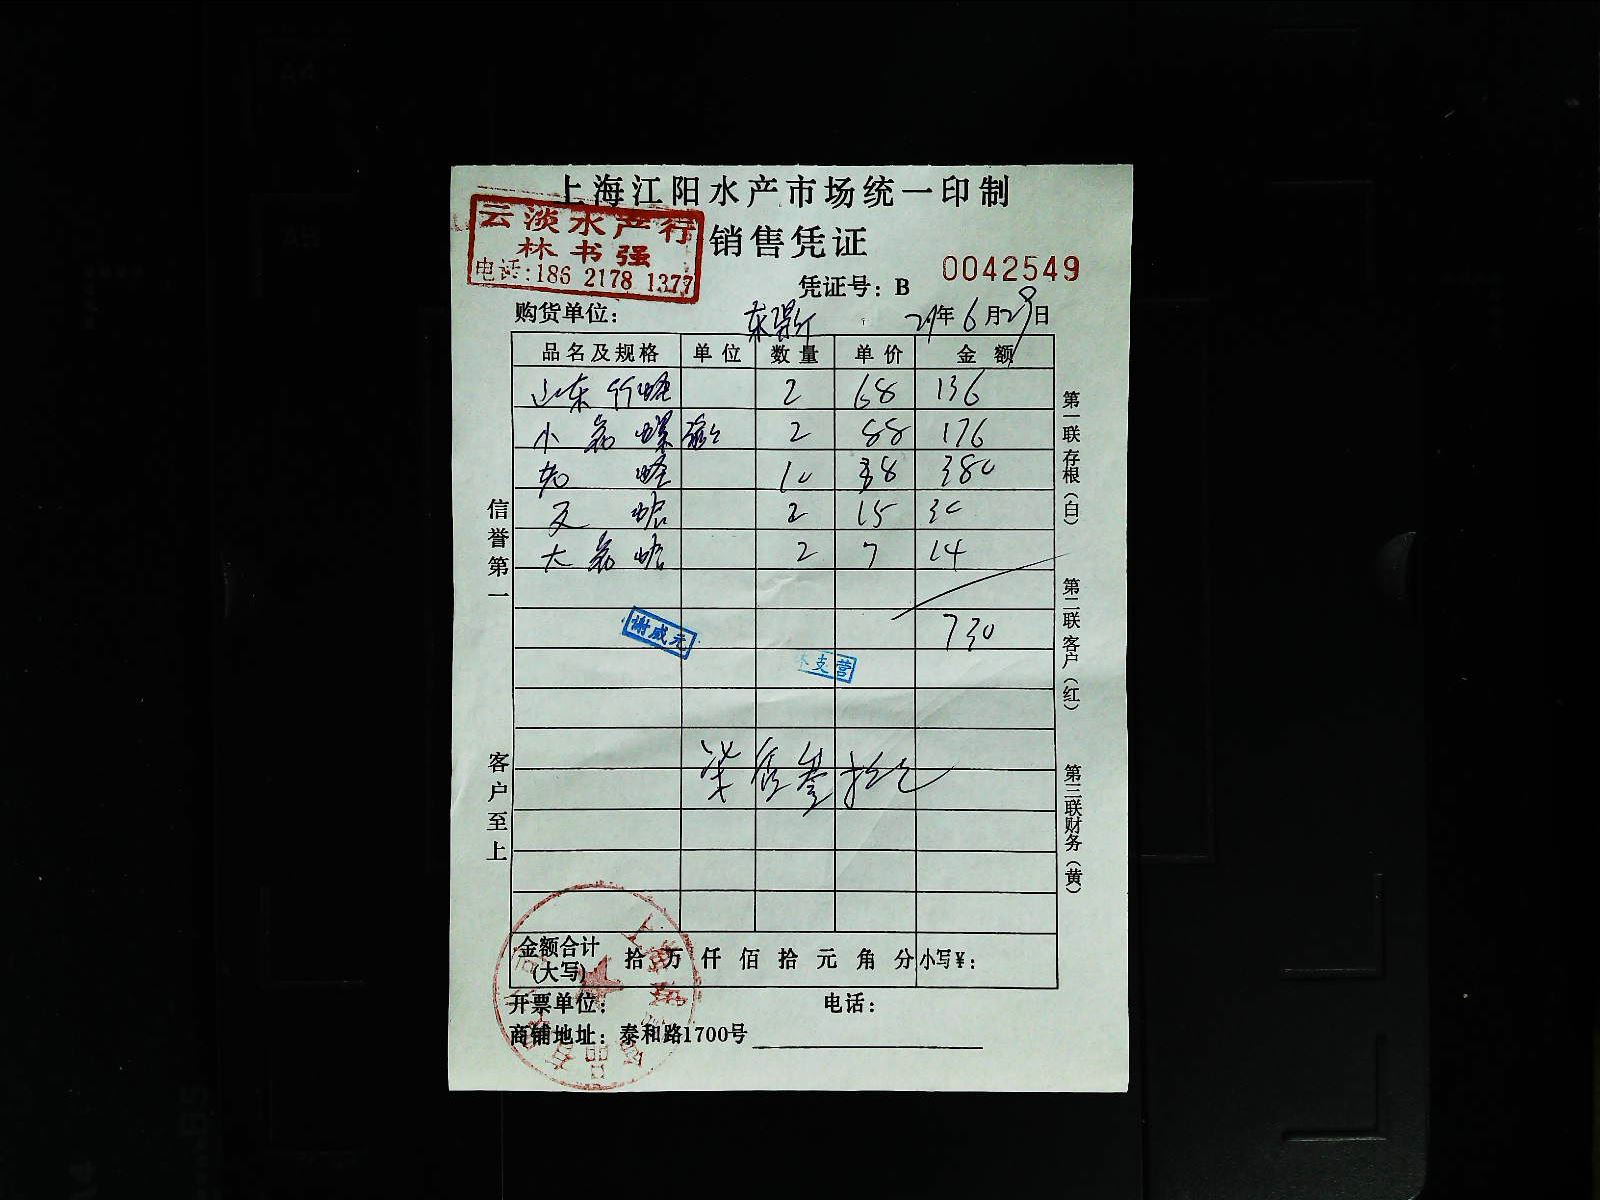 上海江阳水产市场统一印制
云淡水产行
林书强
电话:186 2178 1377
销售凭证
凭证号：B 0042549
购货单位： 21年6月29日
品名及规格 单位 数量 单价 金额
山东竹蛏 2 68 136
小 螺 2 88 176
蛏 10 38 380
蛤 2 15 30
大 蛤 2 7 14
730
谢咸元
支营
柒佰叁拾元
金额合计(大写) 拾 万 仟 佰 拾 元 角 分 小写¥：
开票单位： 电话：
商铺地址：泰和路1700号
信誉第一
客户至上
第一联存根（白）
第二联客户（红）
第三联财务（黄）